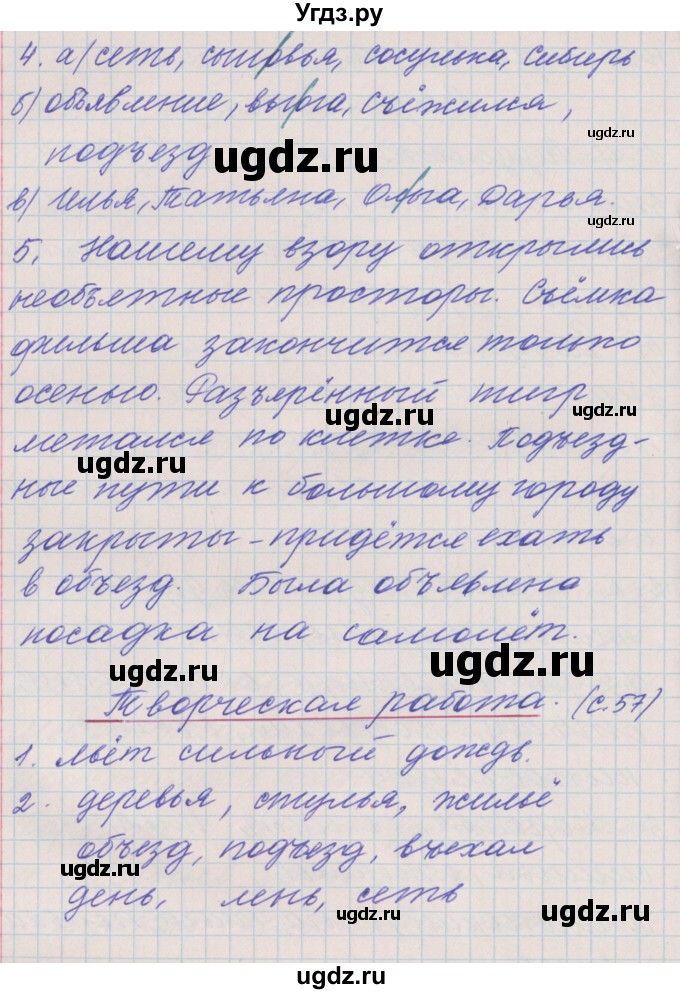 Угдз.ру
4. а) сеть, сыновья, сосулька, Сибирь
б) объявление, вьюга, съёжился,
ugdz.ru
подъезд
ugdz.ru
в) Илья, Татьяна, Ольга, Дарья.
ugdz.ru
5. Нашему взору открылись
необъятные просторы. Съёмка
фильма закончится только
ugdz.ru
осенью. Разъярённый тигр
ugdz.ru
метался по клетке. Подъезд-
ugdz.ru
ные пути к большому городу
закрыты – придётся ехать
в объезд. Была объявлена
посадка на самолёт.
ugdz.ru
ugdz.ru
Творческая работа. (с.57)
1. Льёт сильный дождь.
2. деревья, стулья, жильё
объезд, подъезд, въехал
ugdz.ru
день, лень, сеть
ugdz.ru
ugdz.ru
ugdz.ru